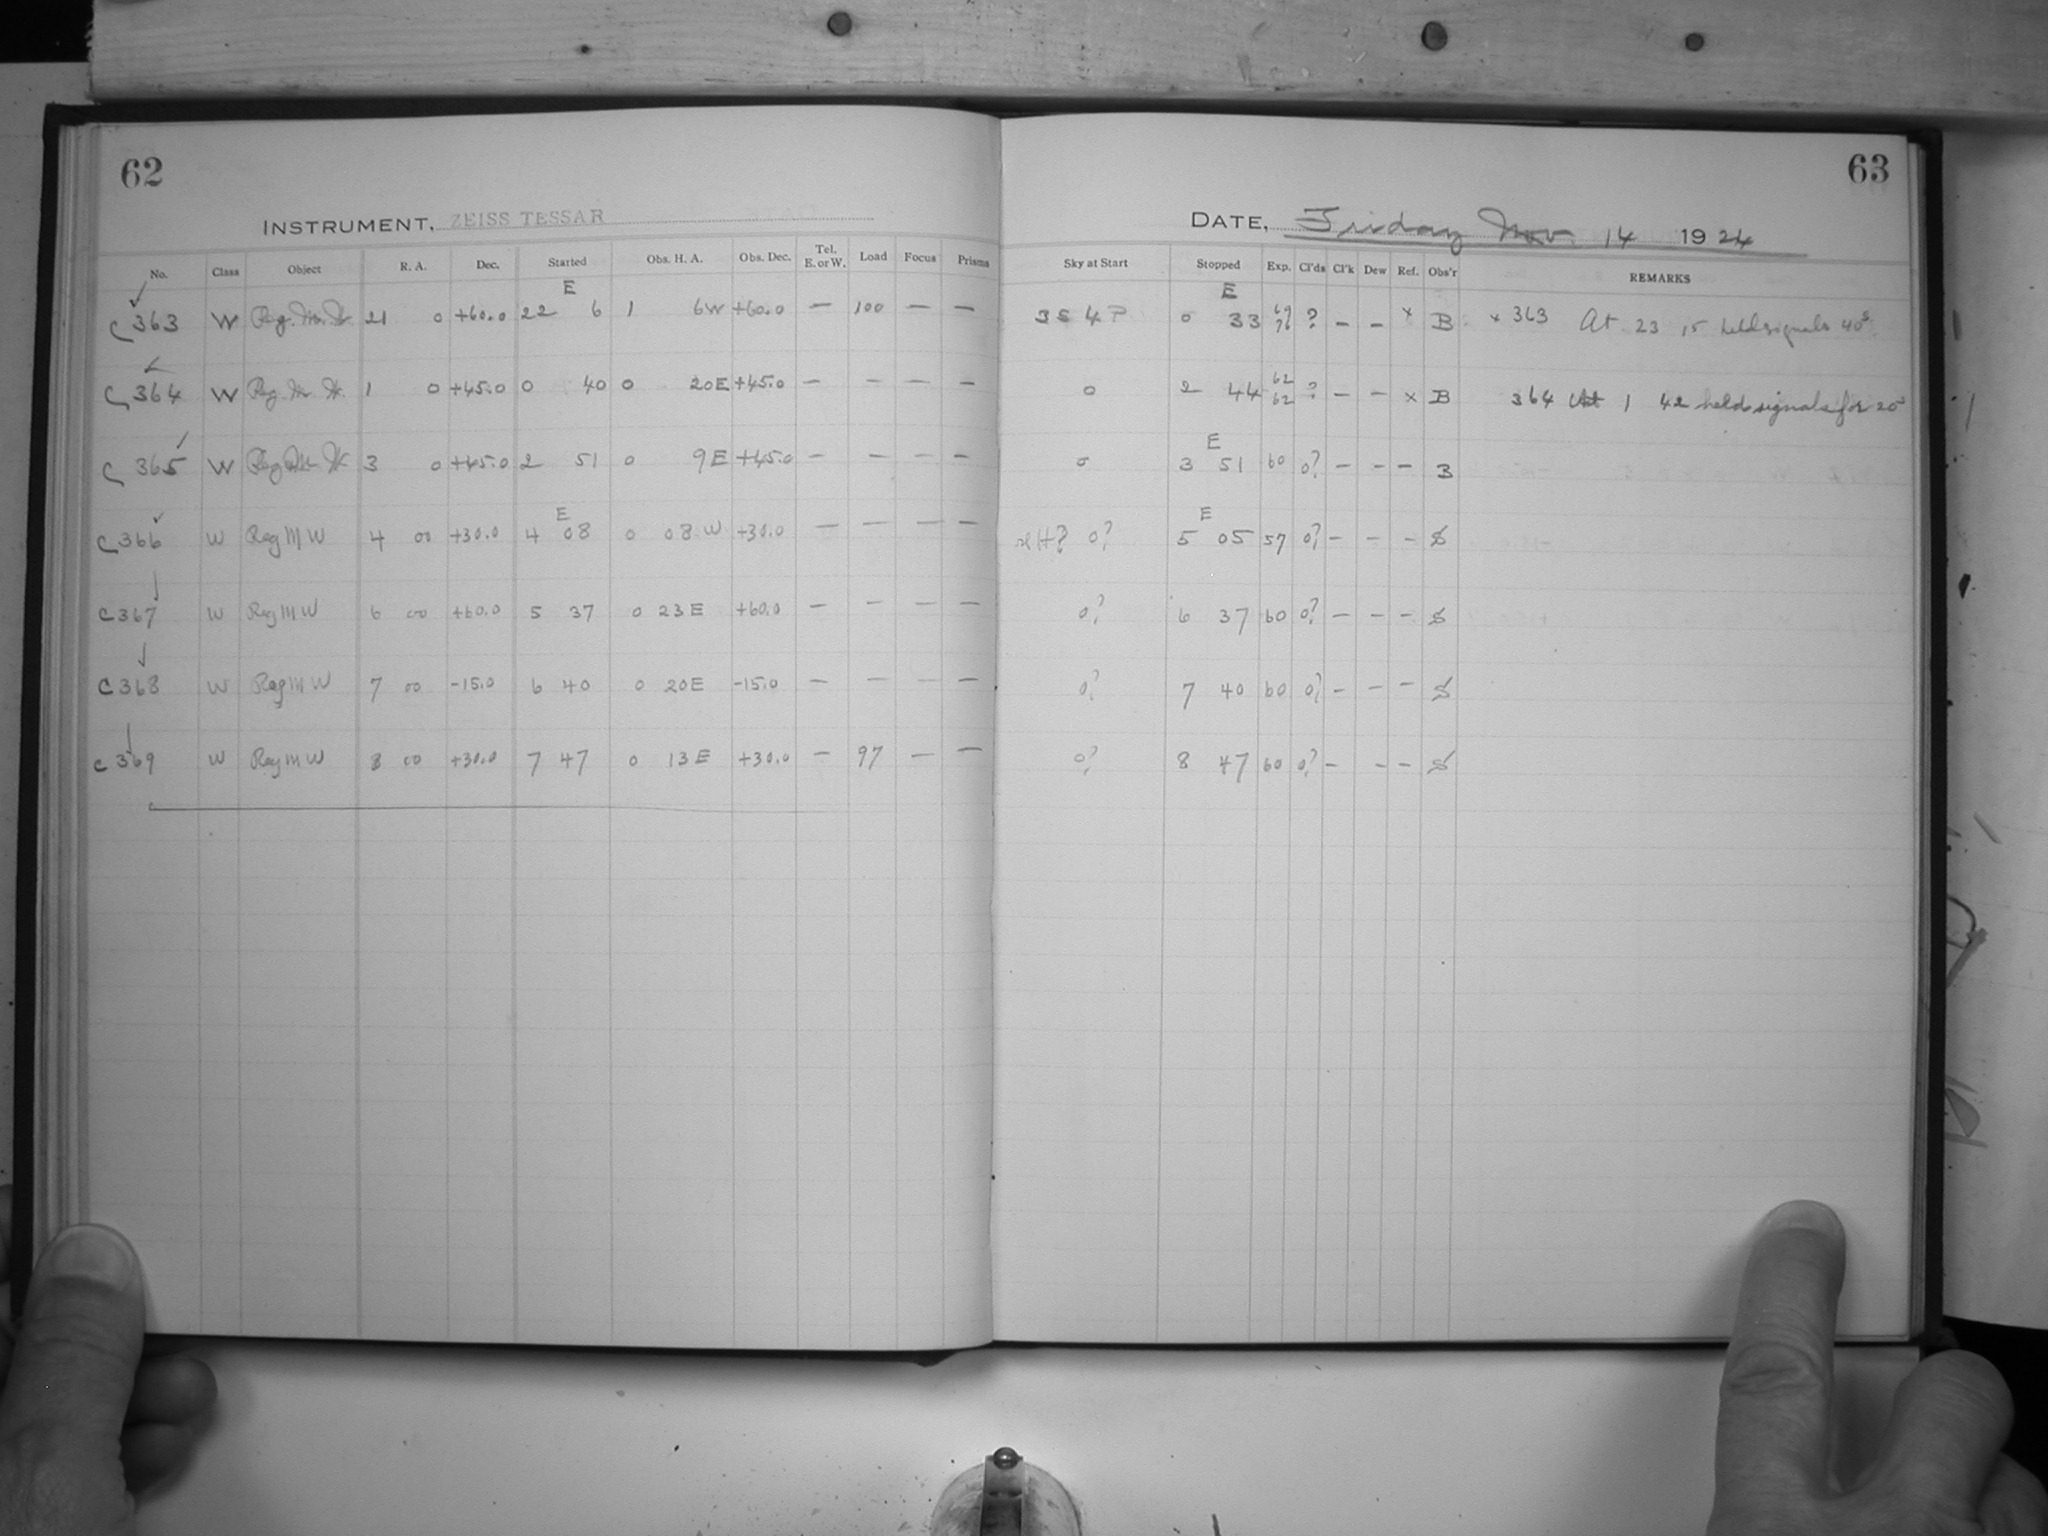 62
INSTRUMENT, ZEISS TESSAR
No. Class Object R. A. Dec. Started Obs. H. A. Obs. Dec. Tel. E. or W. Load Focus Prisms
C 363 W Reg. M. W. 21 0 +60.0 22 E 6 1 6 W +60.0 — 100 — —
C 364 W Reg. M. W. 1 0 +45.0 0 40 0 20 E +45.0 — — — —
C 365 W Reg. M. W. 3 0 +45.0 2 51 0 9 E +45.0 — — — —
C 366 W Reg M W 4 00 +30.0 4 E 08 0 08 W +30.0 — — — —
C 367 W Reg M W 6 00 +60.0 5 37 0 23 E +60.0 — — — —
C 368 W Reg M W 7 00 -15.0 6 40 0 20 E -15.0 — — — —
C 369 W Reg M W 8 00 +30.0 7 47 0 13 E +30.0 — 97 — —
63
DATE, Friday Nov. 14 1924
Sky at Start Stopped Exp. Cl'ds Cl'k Dew Ref. Obs'r REMARKS
3 S 4 P 0 E 33 ? — — x B x 363 At 23 15 held signals 40s
0 2 44 62 62 ? — — x B 364 At 1 42 held signals for 20s
0 3 E 51 60 0? — — — B
0? 5 E 05 57 0? — — — S
0? 6 37 60 0? — — — S
0? 7 40 60 0? — — — S
0? 8 47 60 0? — — — S